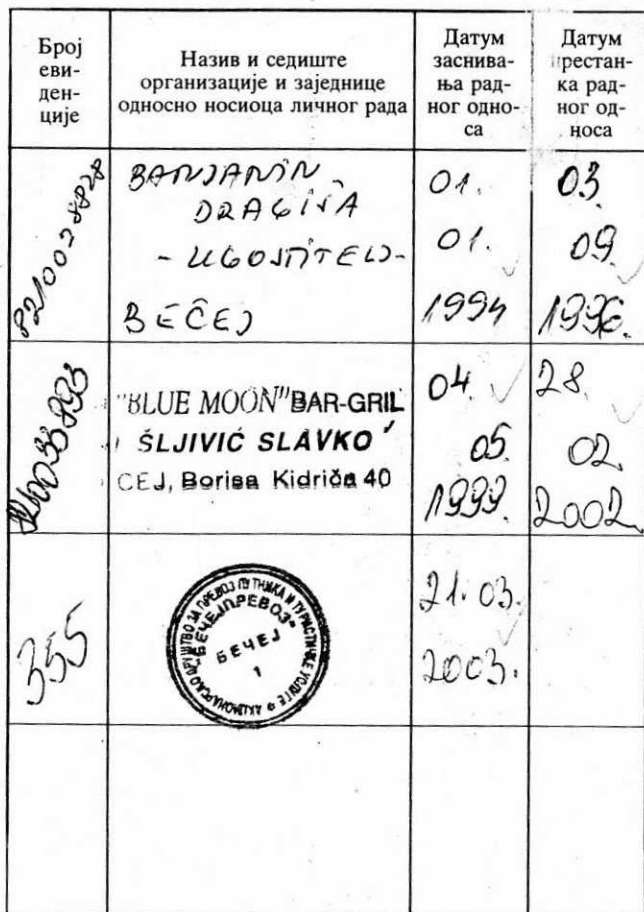 Број
еви-
ден-
ције
Назив и седиште
организације и заједнице
односно носиоца личног рада
Датум
заснива-
ња рад-
ног одно-
са
Датум
престан-
ка рад-
ног од-
носа
BANJANIN
DRAGIŠA
- UGOSTITELJ-
BEČEJ
01.
01.
1994
03.
09.
1996.
"BLUE MOON" BAR-GRIL
ŠLJIVIĆ SLAVKO
CEJ, Borisa Kidriča 40
04.
05.
1999.
28.
02.
2002.
355
АКЦИОНАРСКО ДРУШТВО ЗА ПРЕВОЗ ПУТНИКА И ТУРИСТИЧКЕ УСЛУГЕ
"БЕЧЕЈПРЕВОЗ"
БЕЧЕЈ
1
21.03.
2003.